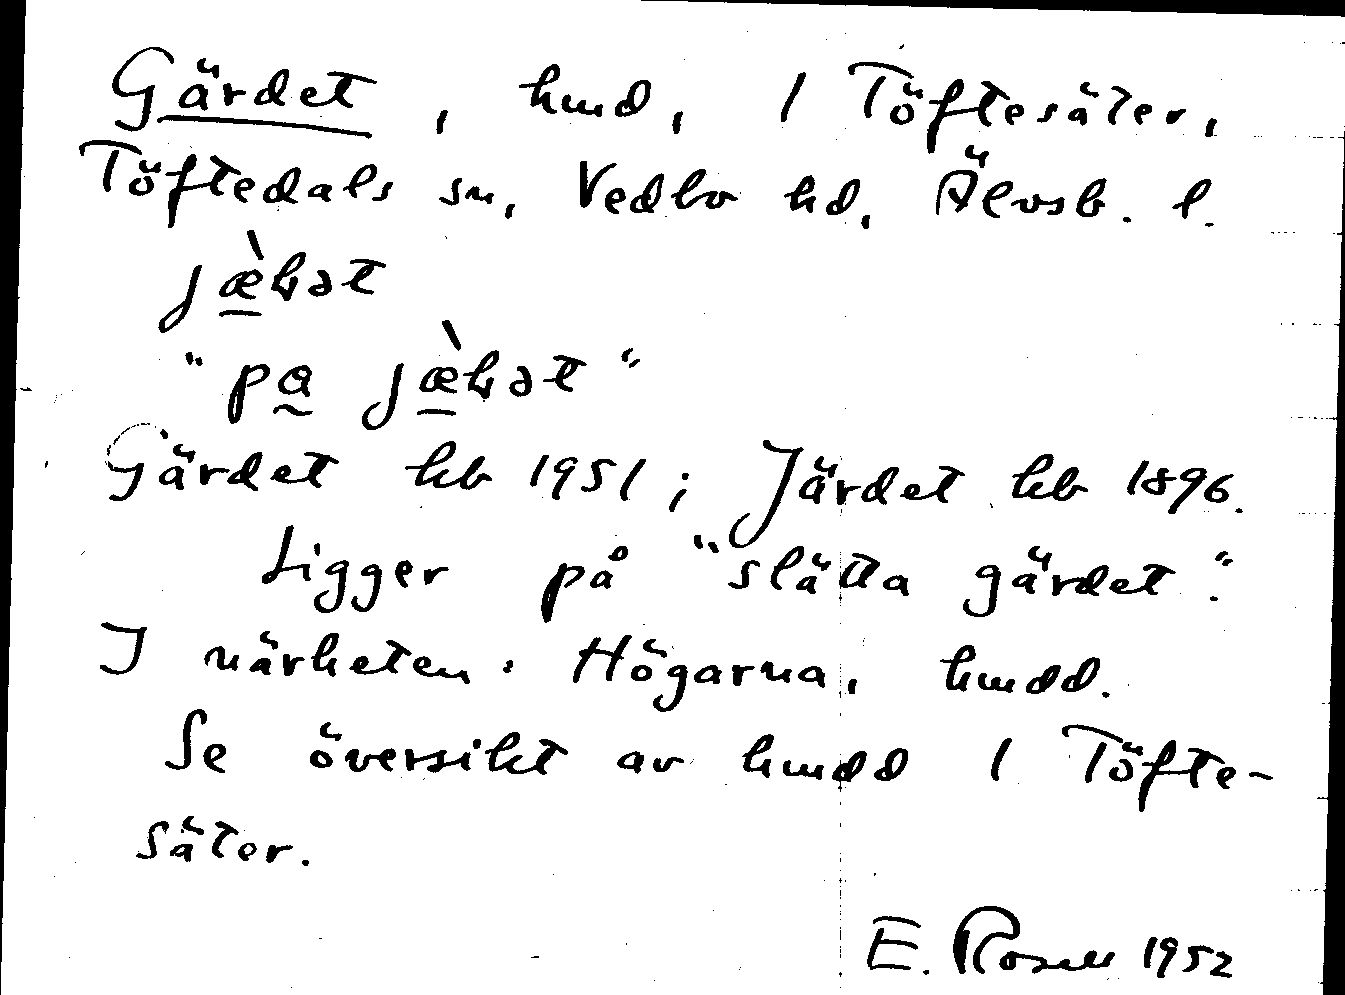 Gärdet, hmd, / Töftesäter,
Töftedals sn, Vedbo hd, Älvsb. l.
"på
Gärdet kb 1951; Järdet kb 1896.
Ligger på "slätta gärdet".
I närheten: Högarna, hmdd.
Se översikt av hmdd / Töfte-
säter.
E. Rosell 1952